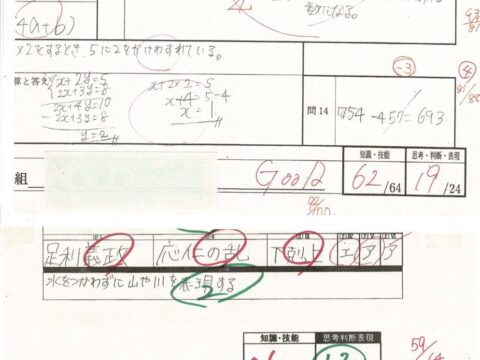 4(a+b)
数になる。
×2をするとき、5に2をかけわすれている。
-3
4
81/88
算と答え
x+2y=5
2x+3y=8
2x+4y=10
-2x+3y=8
y=2
x+2×2=5
x+4=5-4
x=1
問14
754-457=693
知識・技能
思考・判断・表現
組
Good
62/64
19/24
足利義政
応仁の乱
下剋上
エ
ア
水をつかわずに山や川を表現する
2
知識・技能
思考判断表現
59